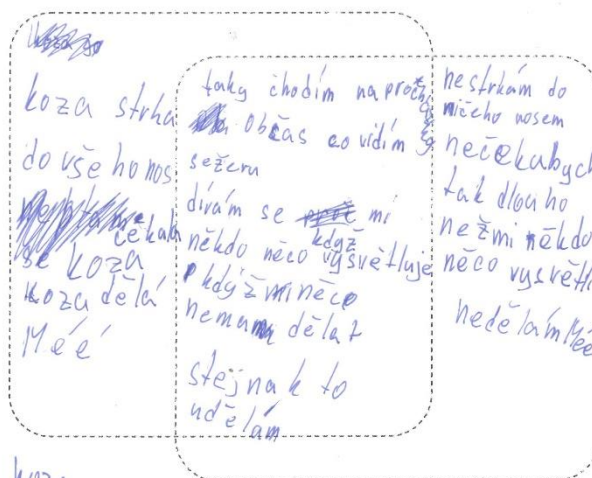 koza strka
do vše ho nos
čekala
se koza
koza dělá
Méé
taky chodím na procházky
občas co vidím
sežeru
dívám se mi
když
někdo něco vysvětluje
když mi něco
nemam dělat
stejnak to
udělám
nestrkám do
ničeho nosem
nečekabych
tak dlouho
nežmi někdo
něco vysvětl
nedělám Méé